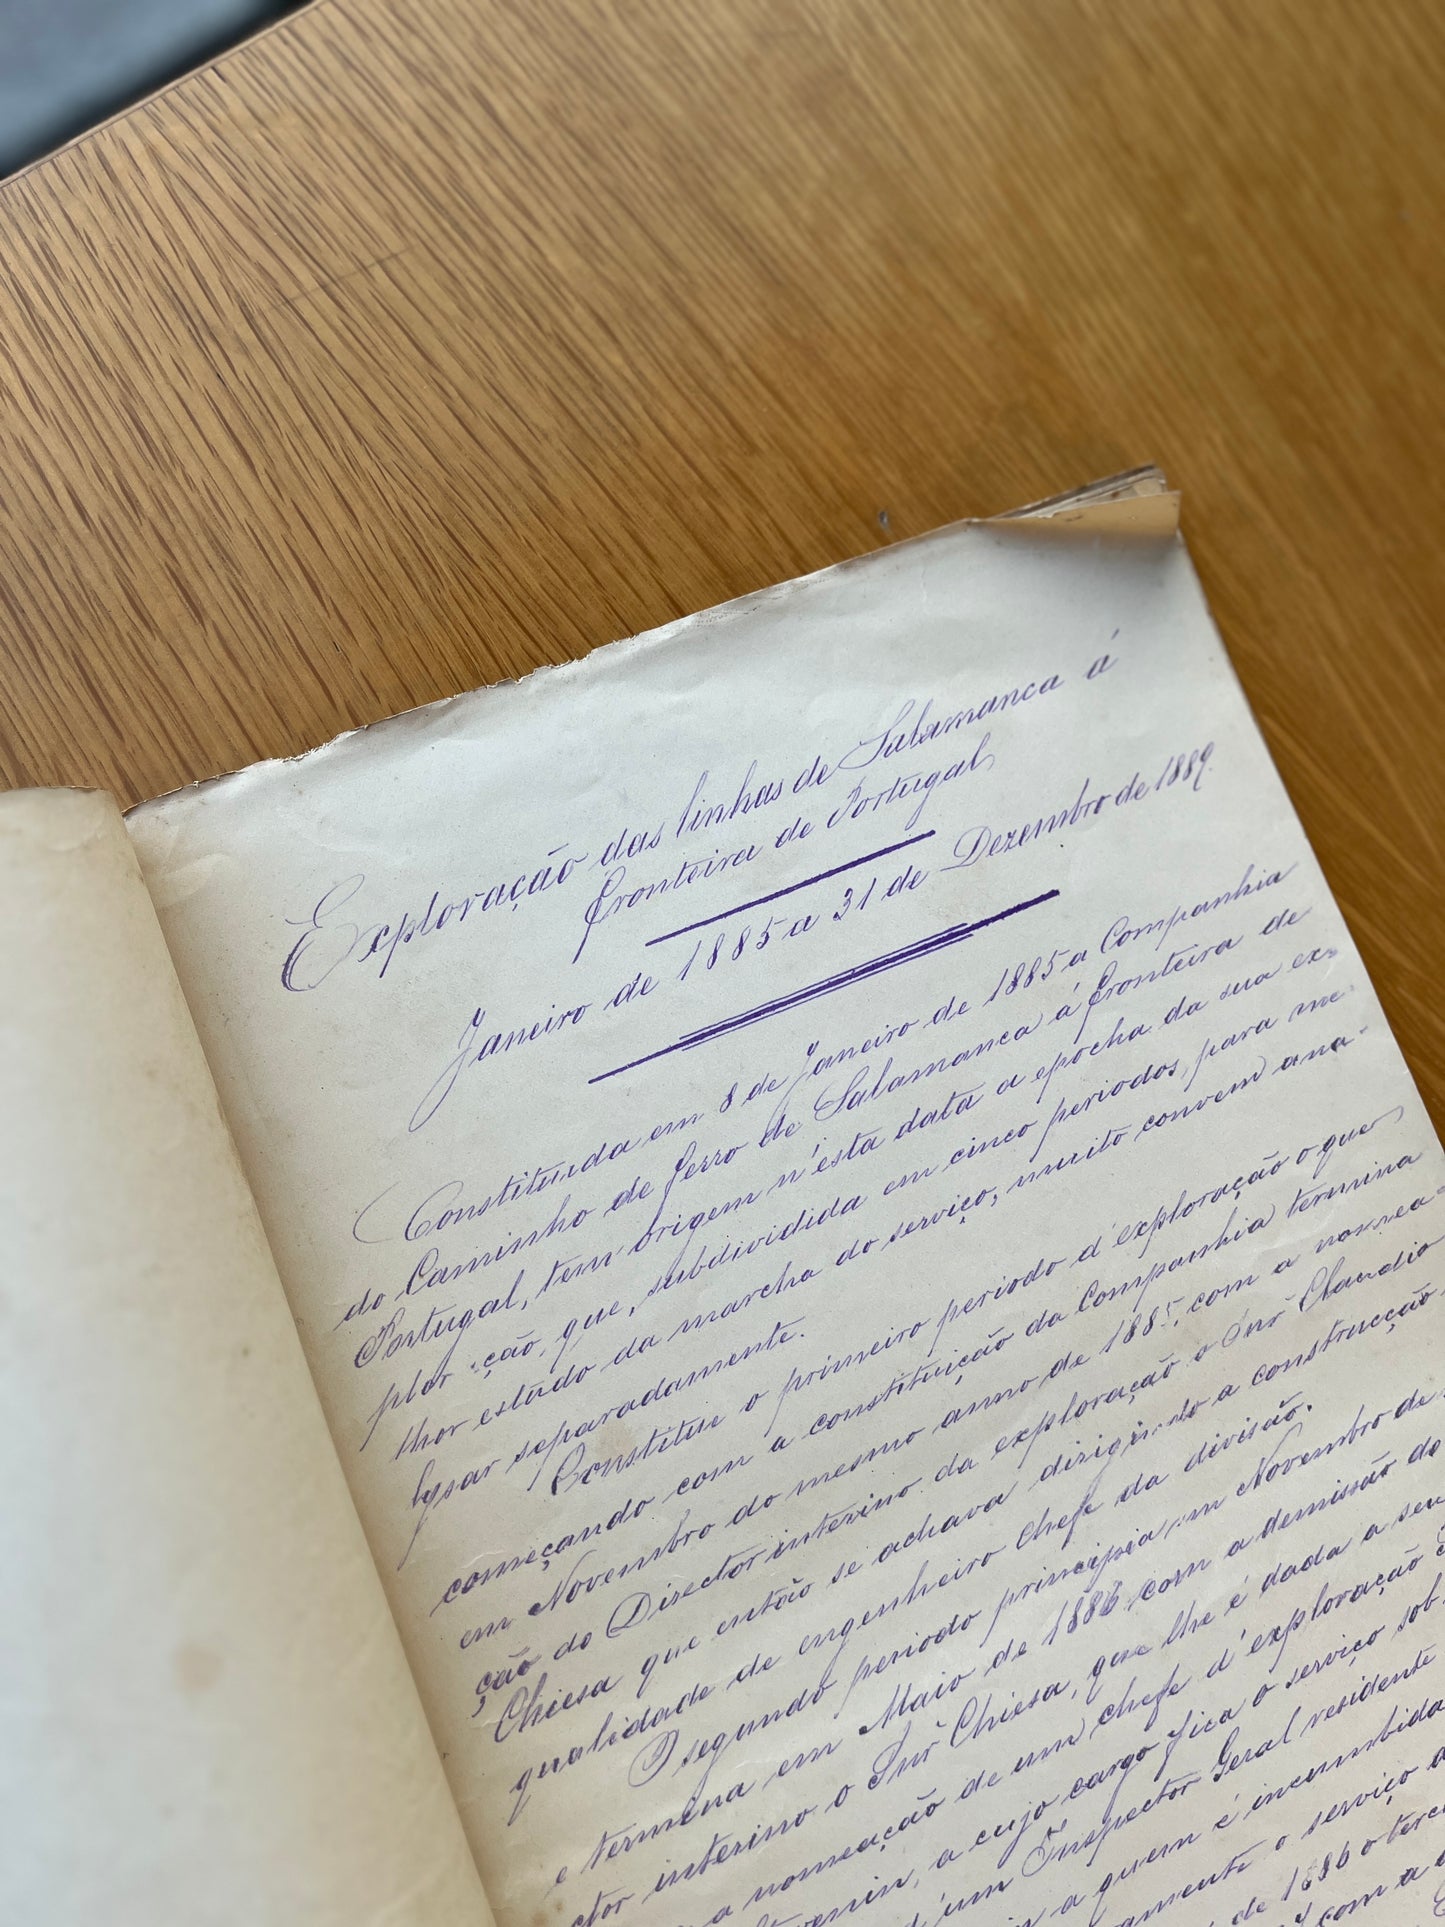 Exploração das linhas de Salamanca á
Fronteira de Portugal
Janeiro de 1885 a 31 de Dezembro de 1889.
Constituida em 8 de Janeiro de 1885 a Companhia
do Caminho de ferro de Salamanca á fronteira de
Portugal, tem origem n'esta data a epocha da sua ex-
ploração, que, subdividida em cinco periodos, para me-
lhor estudo da marcha do serviço, muito convem ana-
lysar separadamente.
Constitue o primeiro periodo d'exploração o que
começando com a constituição da Companhia termina
em Novembro do mesmo anno de 1885, com a nomea-
ção do Director interino da exploração o Snr Claudio
Chiesa que então se achava dirigindo a construcção
qualidade de engenheiro Chefe da divisão.
O segundo periodo principia em Novembro de
e termina em Maio de 1886 com a demissão de
ctor interino o Snr Chiesa, que lhe é dada a seu
a nomeação de um chefe d'exploração
a cujo cargo fica o serviço sob
d'um Inspector Geral residente
a quem é incumbida
o serviço a
de 1886 o terc
com a